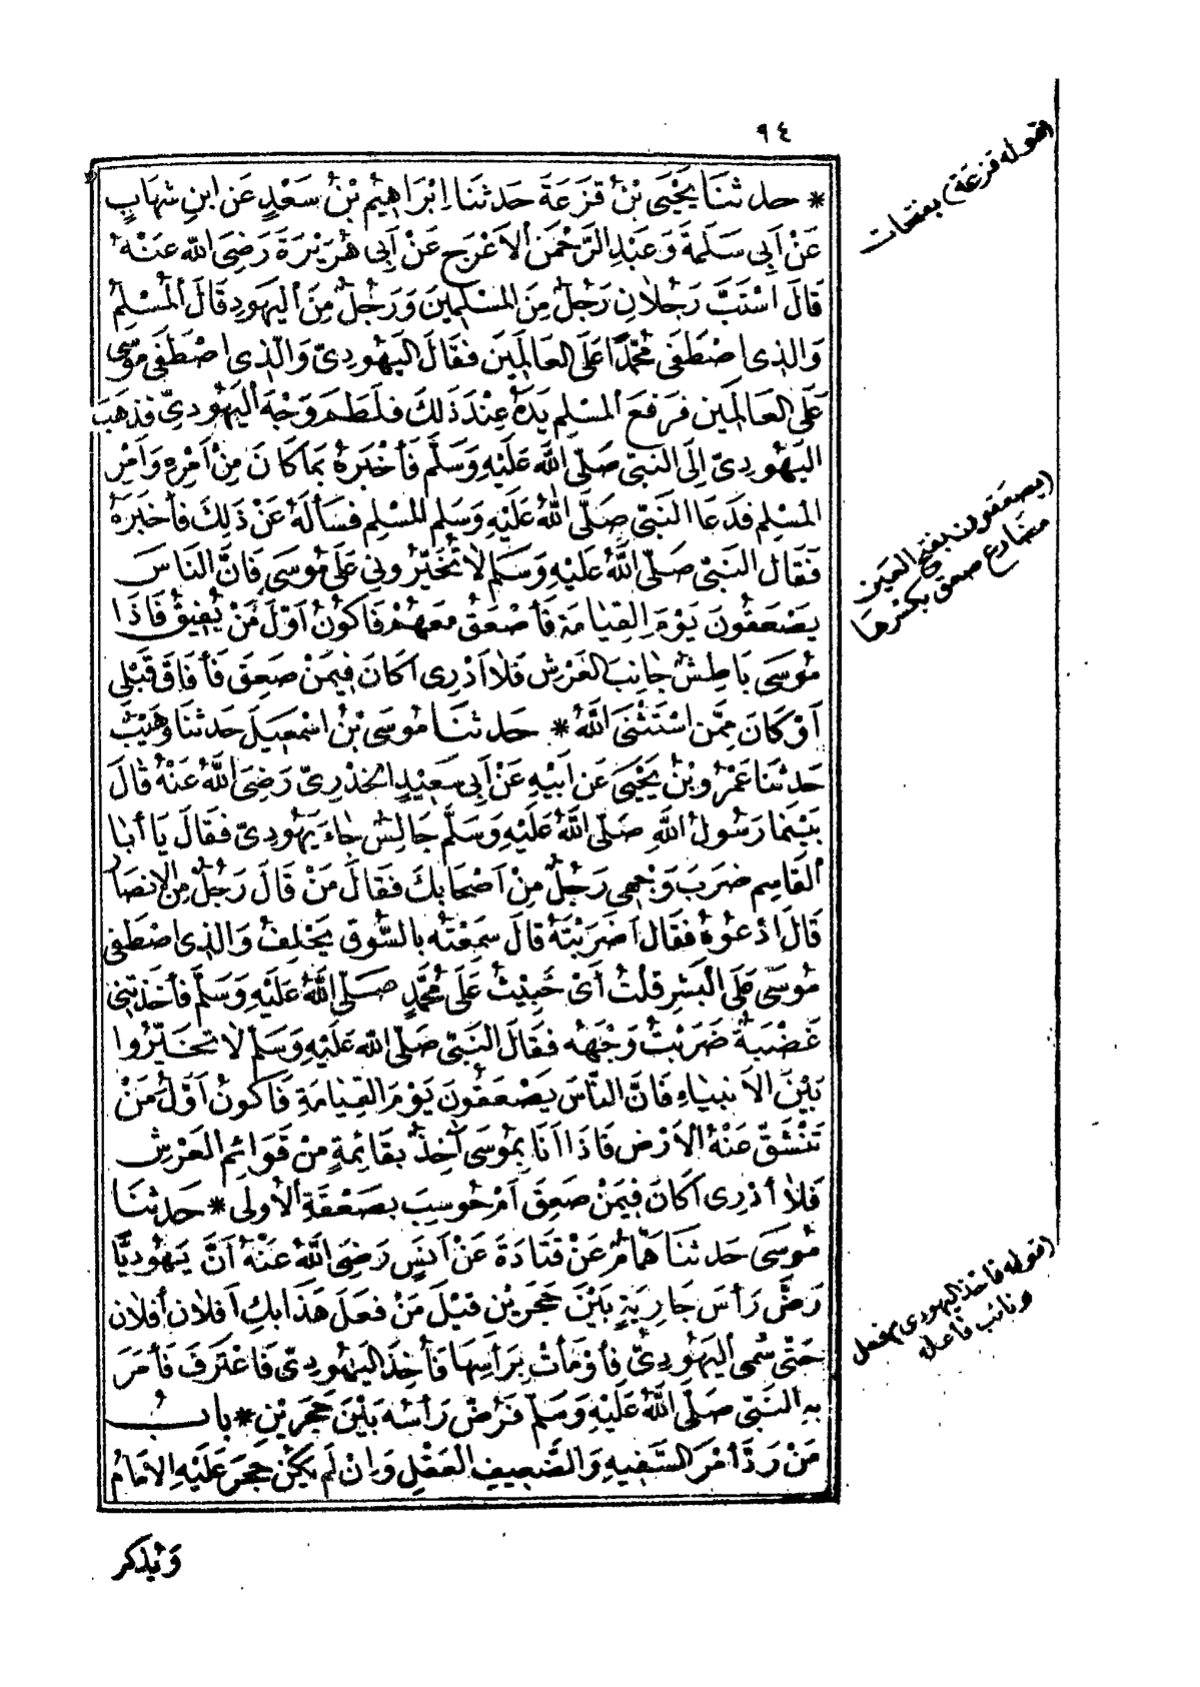 ٩٤
* حدثنا يَحْيَى بْنُ قَزَعَةَ حَدثنَا اِبْرَاهِيمُ بْنُ سَعْدٍ عَن ابنِ شهَابٍ
عَنْ اَبِى سَلَمةَ وَعَبْدِ الرَّحْمنِ الاَعْرَجِ عَنْ اَبِى هُرَيْرَةَ رَضِىَ اللهُ عنَهُ
قَالَ اسْتَبَّ رَجُلانِ رَجُلٌ مِنَ المُسْلِمِينَ وَرَجُلٌ مِنَ اليَهودِ قَالَ المُسْلِمُ
وَالذِى اصْطَفَى مُحَمَّدًا عَلَى العَالَمِينَ فقَالَ اليَهُودِىُّ وَالَّذِى اصْطَفَى مُوسَى
عَلَى العَالَمِينَ فرَفعَ المُسْلِمُ يَدَهُ عِنْدَ ذَلِكَ فلَطَمَ وَجْهَ اليَهُودِىِّ فذَهَبَ
اليَهُودِىُّ اِلَى النَبىِّ صَلَّى اللَّهُ عَلَيْهِ وَسَلَّم فَأخْبَرَهُ بَمَا كَانَ مِنْ اَمْرِهِ وَاَمْرِ
المُسْلِم فدَعَا النَبىُّ صَلَّى اللهُ عَلَيْهِ وَسَلم المُسْلِمَ فسَألَهُ عَنْ ذَلِكَ فأخبَرَهُ
فَقَال النَبىُّ صَلَّى اللَّهُ عَلَيْهِ وَسَلم لاتُخَيِّرُونِى عَلَى مُوسَى فَانَّ النَاسَ
يَصْعَقُونَ يَوْمَ القِيَامَة فَأصْعَقُ مَعهُمْ فَاكُونُ اَوَّلَ مَنْ يُفِيقُ فَاذَا
مُوسَى بَاطِشٌ جَانِبَ العَرْشِ فَلا اَدْرِى اَكَانَ فِيمَنْ صَعِقَ فَأفَاقَ قَبْلِى
اَوْ كَانَ مِمَّن اسْتَثْنَى اللَّهُ * حَدثنَا مُوسَى بْنُ اسْمَعِيلَ حَدثنَا وُهَيْبٌ
حَدثنَا عَمْرُو بْنُ يَحْيَى عَن اَبيْهِ عَنْ اَبِى سَعِيْدٍ الخُدْرِىِّ رَضِىَ اللَّهُ عَنْهُ قَالَ
بَيْنمَا رَسُولُ اللَّهِ صَلَّى اللَّهُ عَلَيْهِ وَسَلَّم جَالِسٌ جَاءَ يَهُودِىٌّ فقَالَ يَا أبَا
القَاسِم ضرَبَ وَجْهِى رَجُلٌ مِنْ اَصْحَابِكَ فقَالَ مَنْ قَالَ رَجُلٌ مِنَ الانصَارِ
قَالَ ادْعُوهُ فقَال اَضَرَبْتَهُ قَالَ سَمِعْتُه بالسُّوقِ يَحْلِفُ وَالذِى اصْطَفَى
مُوسَى عَلَى البَشَرِ قلْتُ أَىْ خَبِيْثُ عَلَى مُحَمَّدٍ صَلَّى اللَّهُ عَلَيْهِ وَسَلَّم فأخَذَتْنِى
غَضْبَةٌ ضَرَبْتُ وَجْهَهُ فقَالَ النَبىُّ صَلَّى اللهُ عَلَيْهِ وَسَلَم لاتُخَيِّرُوا
بَيْنَ الاَنبيَاءِ فَانَّ النَّاسَ يَصْعَقُونَ يَوْمَ القِيَامَةِ فَاكُونُ اَوَّلَ مَنْ
تَنْشَقُّ عَنْهُ الاَرْضُ فَاذَا اَنَا بِمُوسَى آخِذٌ بقَائِمَةٍ مِنْ قَوَائِمِ العَرْشِ
فَلا أدْرِى اَكَانَ فِيمَنْ صَعِقَ اَمْ حُوسِبَ بصَعْقَةِ الاُولَى * حَدثنَا
مُوسَى حَدثنَا هَمَّامٌ عَنْ قَتَادَةَ عَنْ اَنَسٍ رَضِىَ اللَّهُ عَنْهُ اَنَّ يَهُودِيًّا
رَضَّ رَأسَ جَارِيَةٍ بَيْنَ حَجَرَيْنِ قيْلَ مَنْ فعَلَ هَذا بِكِ اَفُلَان اَفُلَان
حَتَّى سُمِىَ اليَهُودِىُّ فأوْمَأتْ برَأسِهَا فَأُخِذَ اليَهُودِىُّ فَاعْتَرَفَ فَأمَرَ
بهِ النَبىُّ صَلَّى اللَّهُ عَلَيْهِ وَسَلَّم فَرُضَّ رَأسُه بَيْنَ حَجَرَيْنِ * بابُ
مَنْ رَدَّ أمْرَ السَّفِيهِ وَالضَّعِيفِ العَقْلِ وَانْ لَم يَكُنْ حَجَرَ عَلَيْهِ الاِمَامُ
وَيُذكر
(قوله قزعة) بفتحات
(يصعقون بفتح العين
مضارع صعق بكسرها
(قوله فأخذ اليهودى) فعل
ونائب فاعله